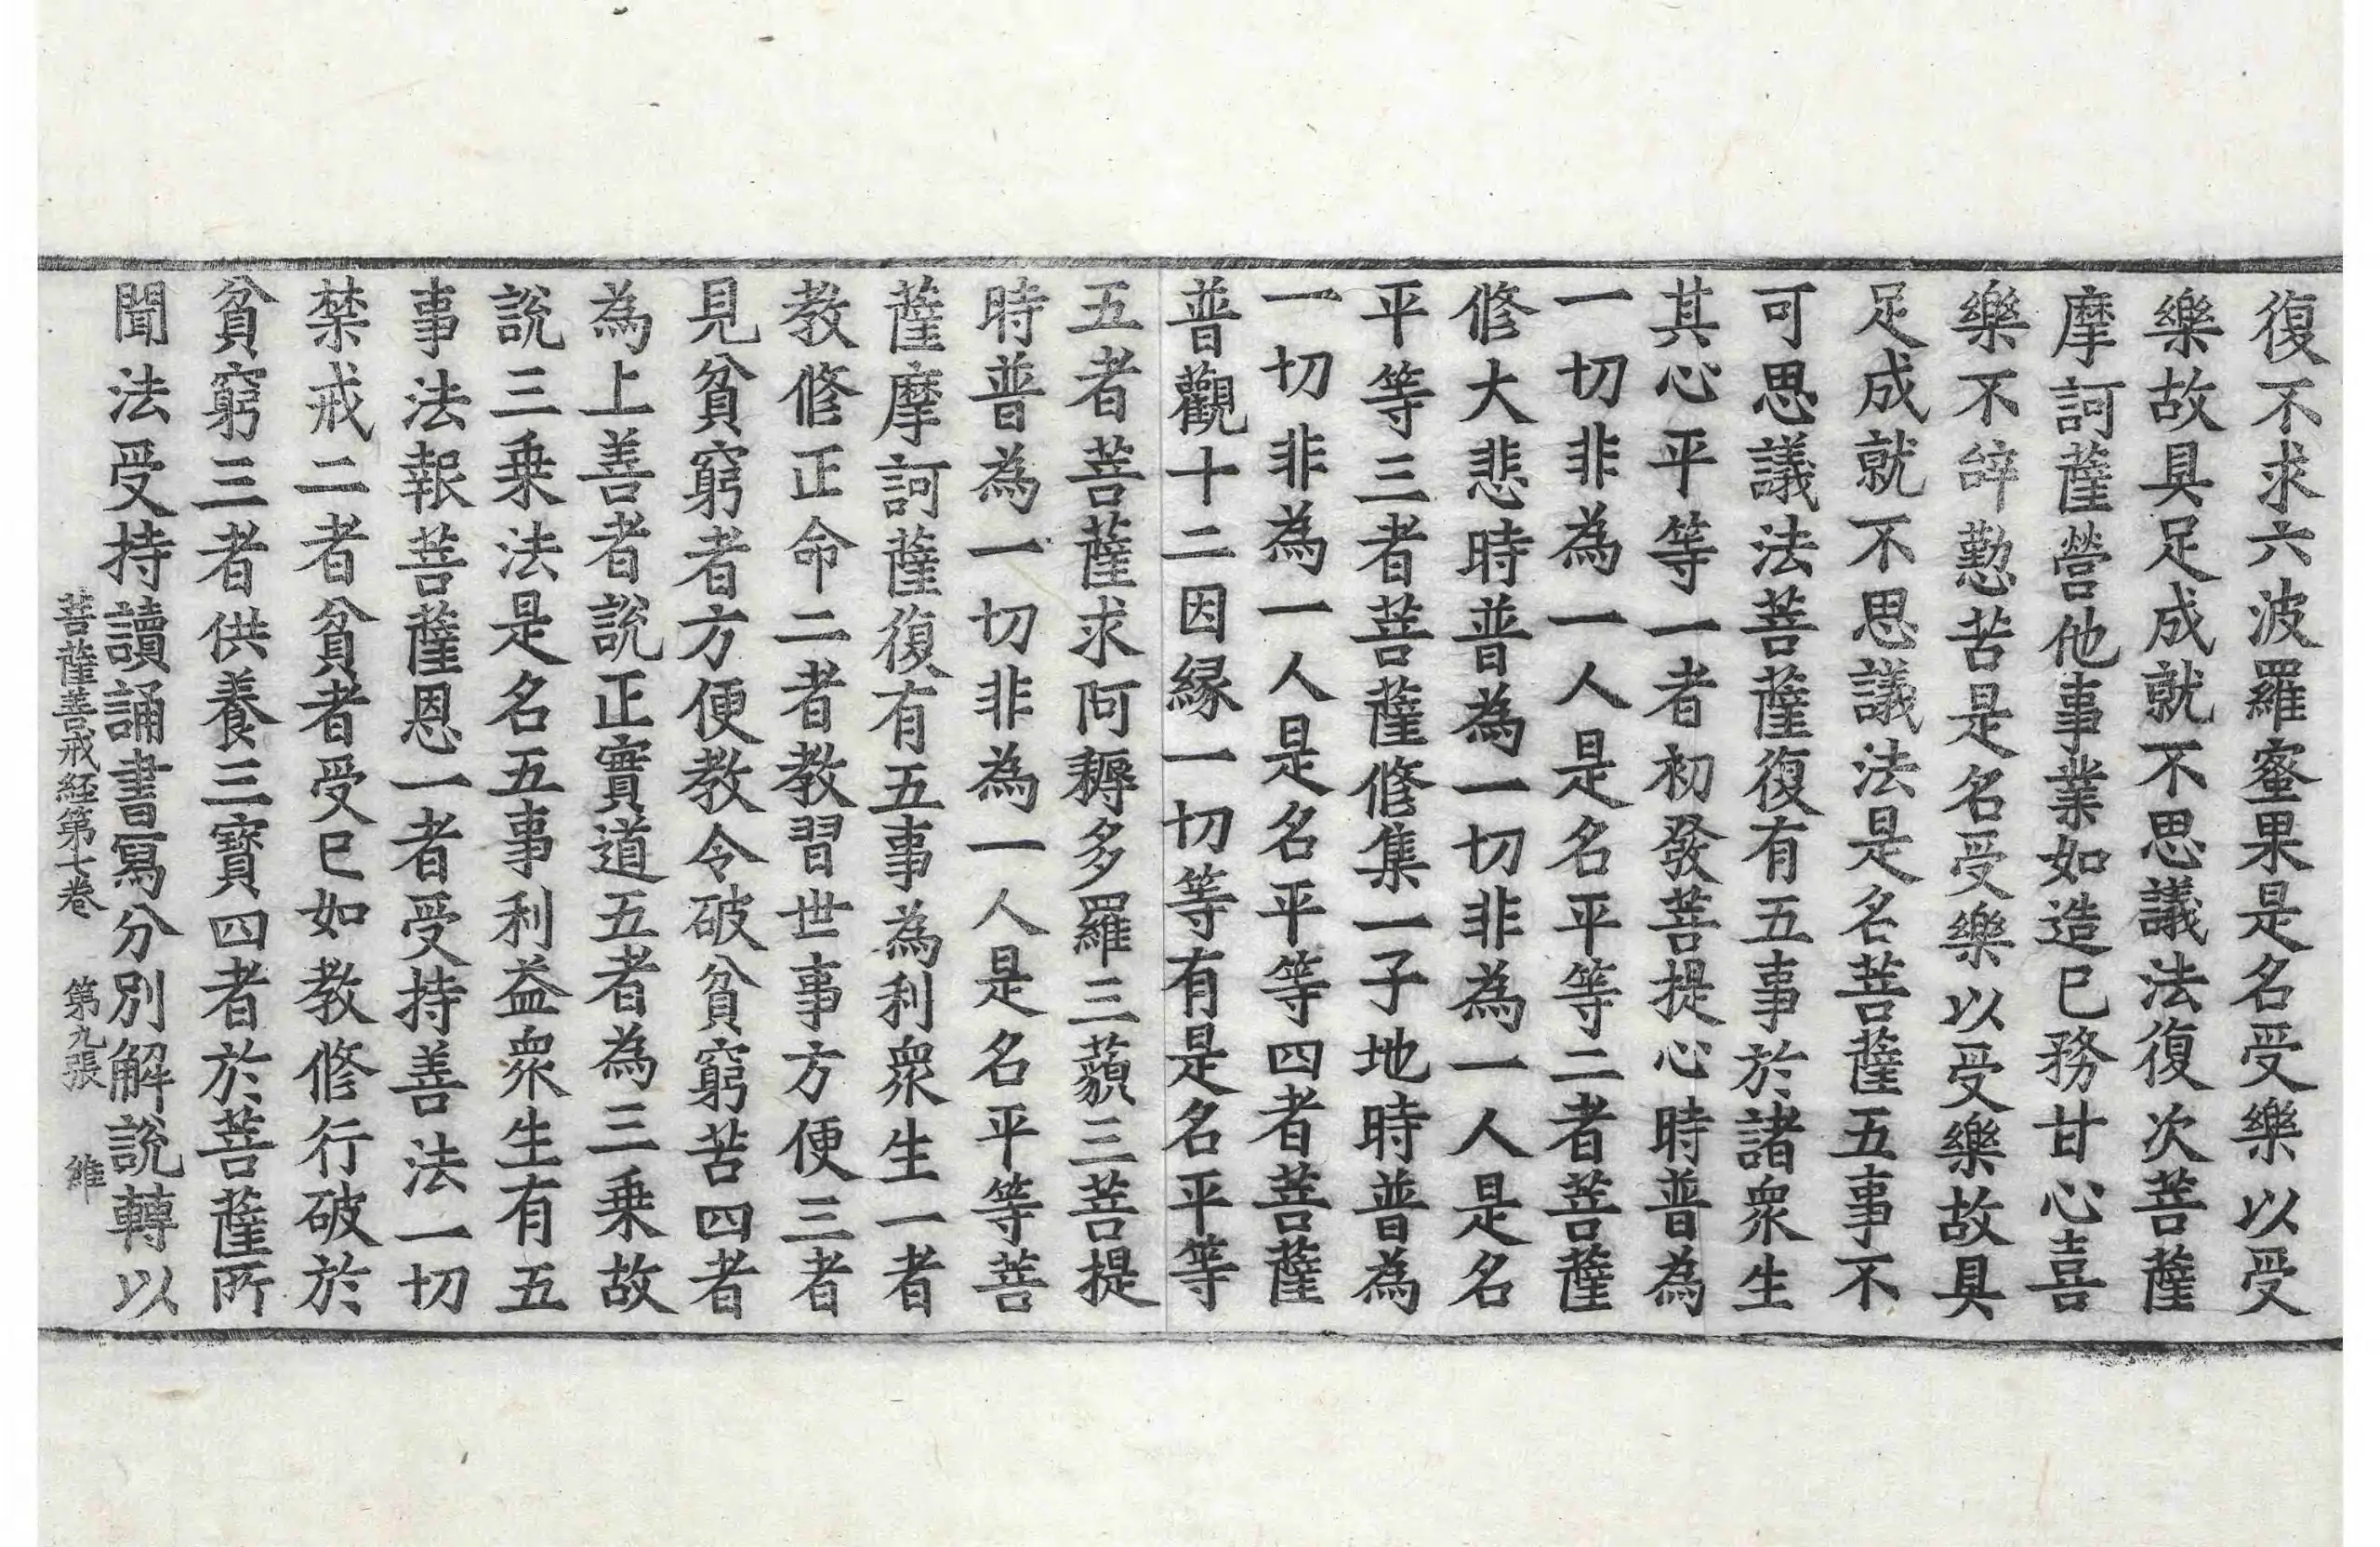 復不求六波羅蜜果是名受樂以受
樂故具足成就不思議法復次菩薩
摩訶薩營他事業如造已務甘心喜
樂不辝懃苦是名受樂以受樂故具
足成就不思議法是名菩薩五事不
可思議法菩薩復有五事於諸衆生
其心平等一者初發菩提心時普為
一切非為一人是名平等二者菩薩
修大悲時普為一切非為一人是名
平等三者菩薩修集一子地時普為
一切非為一人是名平等四者菩薩
普觀十二因縁一切等有是名平等
五者菩薩求阿耨多羅三藐三菩提
時普為一切非為一人是名平等菩
薩摩訶薩復有五事為利衆生一者
教修正命二者教習世事方便三者
見貧窮者方便教令破貧窮苦四者
為上善者說正實道五者為三乗故
說三乗法是名五事利益衆生有五
事法報菩薩恩一者受持善法一切
禁戒二者貧者受已如教修行破於
貧窮三者供養三寶四者於菩薩所
聞法受持讀誦書寫分別解說轉以
菩薩善戒経第七巻 第九張 維